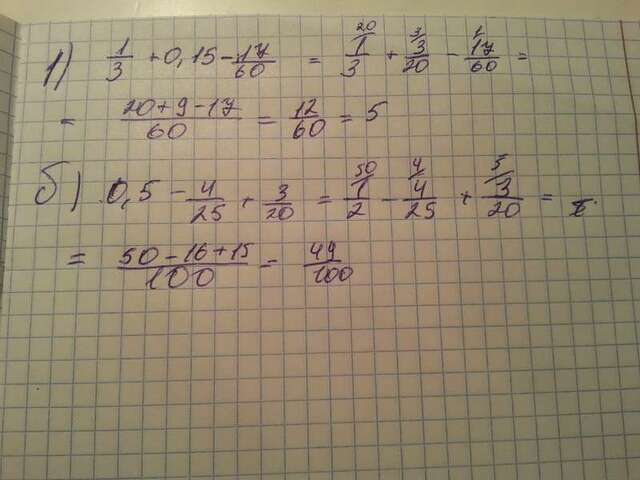 1) 1/3 + 0,15 - 17/60 = 1/3 20/ + 3/20 3/ - 17/60 1/ =
= 20+9-17/60 = 12/60 = 5
б) 0,5 - 4/25 + 3/20 = 1/2 50/ - 4/25 4/ + 3/20 5/ =
= 50-16+15/100 = 49/100